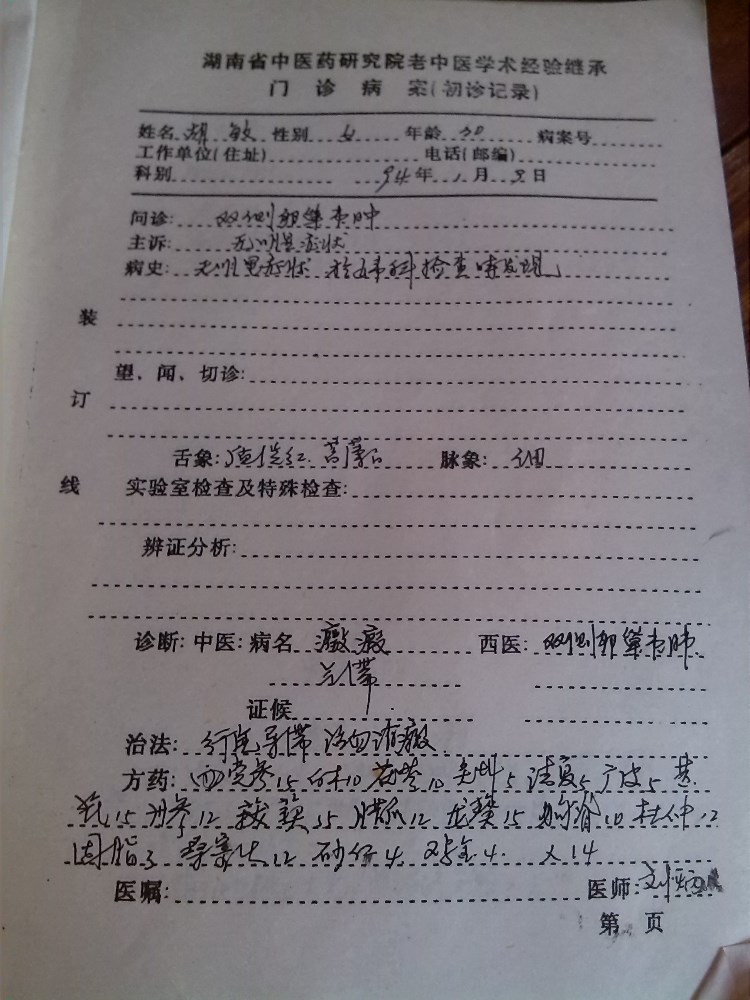 湖南省中医药研究院老中医学术经验继承
门 诊 病 案(初诊记录)
姓名 胡敏 性别 女 年龄 30 病案号
工作单位(住址) 电话(邮编)
科别 94年1月3日
问诊: 双侧卵巢囊肿
主诉: 无明显症状
病史: 无明显症状 于妇科检查时发现
装
望、闻、切诊:
订
舌象: 淡红 苔薄白 脉象: 细
线 实验室检查及特殊检查:
辨证分析:
诊断: 中医: 病名 癥瘕 西医: 双侧卵巢囊肿
证候
治法: 导滞 消癥
方药: 西党参15 白术10 茯苓10 5 5 广皮5 黄
芪15 丹参12 15 12 龙葵15 10 杜仲12
固脂3 桑寄生12 砂仁4 4 X14
医嘱: 医师:
第 页